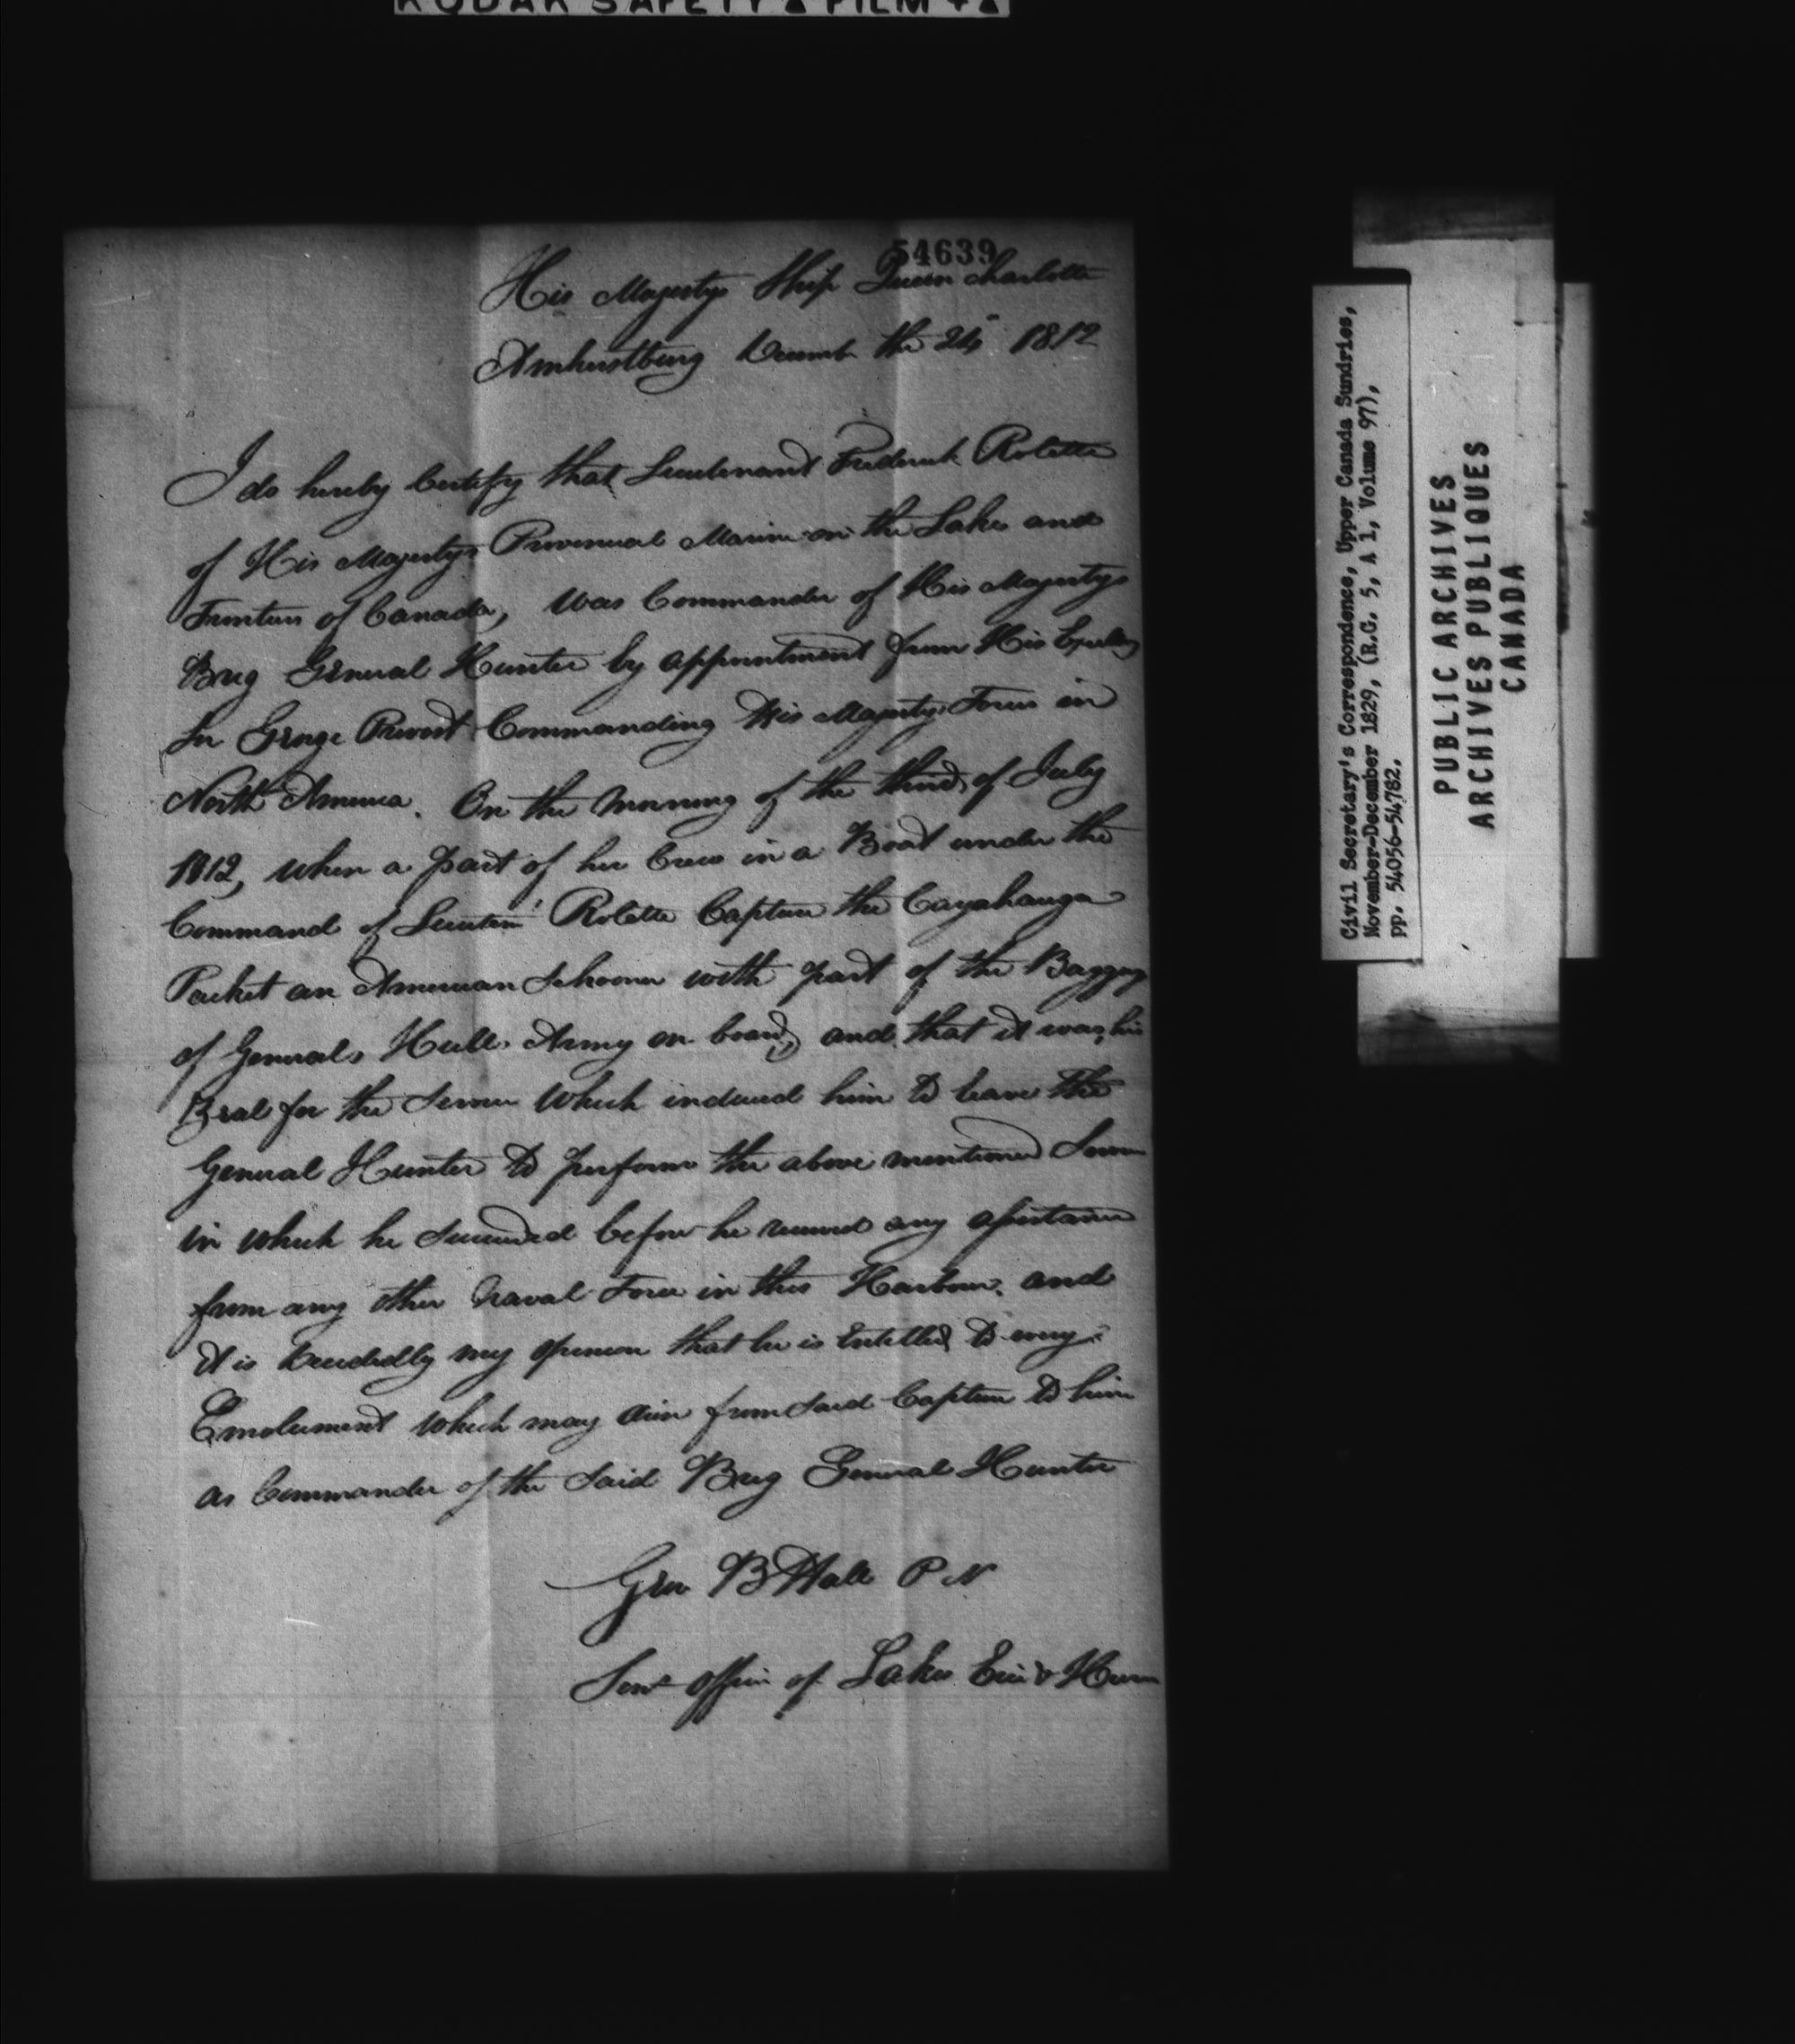 KODAK SAFETY FILM 4
54639
His Majestys Ship Queen Charlotte
Amherstburg Decemb. the 24 1812
I do hereby Certify that Lieutenant Frederick Rolette
of His Majestys Provincial Marine on the Lakes and
Frontiers of Canada, was Commander of His Majestys
Brig General Hunter by appointment from His Excellency
Sir George Prevost Commanding His Majestys Forces in
North America. On the Morning of the third of July
1812, when a part of her Crew in a Boat under the
Command of Lieuten Rolette Capture the Cayahauga
Packet an American Schooner with part of the Baggage
of Generals Hull Army on board, and that it was his
Zeal for the Service which induced him to leave The
General Hunter to perform the above mentioned Service
in which he Succeeded before he received any assistance
from any other Naval Force in this Harbour, and
it is decidedly my opinion that he is Entitled to every
Emolument which may arise from said Capture to him
as Commander of the Said Brig General Hunter
Geo B Hall P N
Senr Officer of Lakes Erie & Huron
Civil Secretary's Correspondence, Upper Canada Sundries,
November-December 1829, (R.G. 5, A 1, Volume 97),
pp. 54056-54782.
PUBLIC ARCHIVES
ARCHIVES PUBLIQUES
CANADA